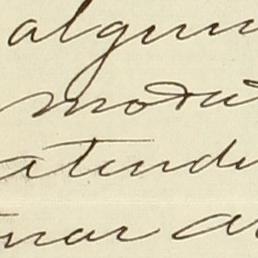 algun
modu
atende
nar a